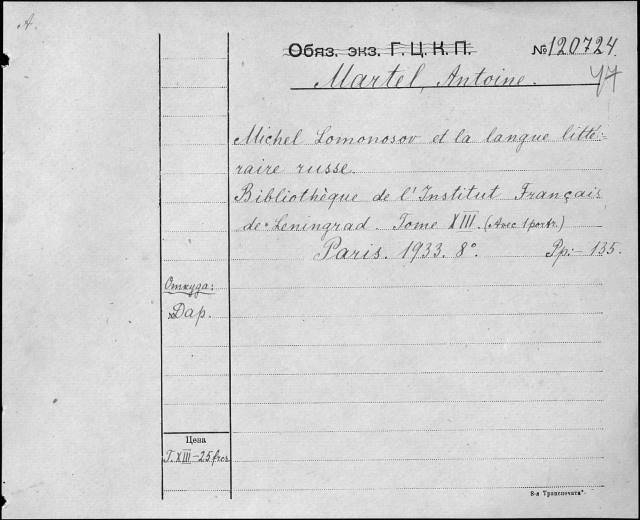 А.
Обяз. экз. Г. Ц. К. П. № 120724.
Martel, Antoine. 47
Michel Lomonosov et la langue litté-
raire russe.
Bibliothèque de l'Institut Français
de Leningrad. Tome XIII. (Avec 1 portr.)
Paris. 1933. 8°. Pp:- 135.
Откуда:
Дар.
Цена
T. XIII - 25 frcs
8-я Транспечать"